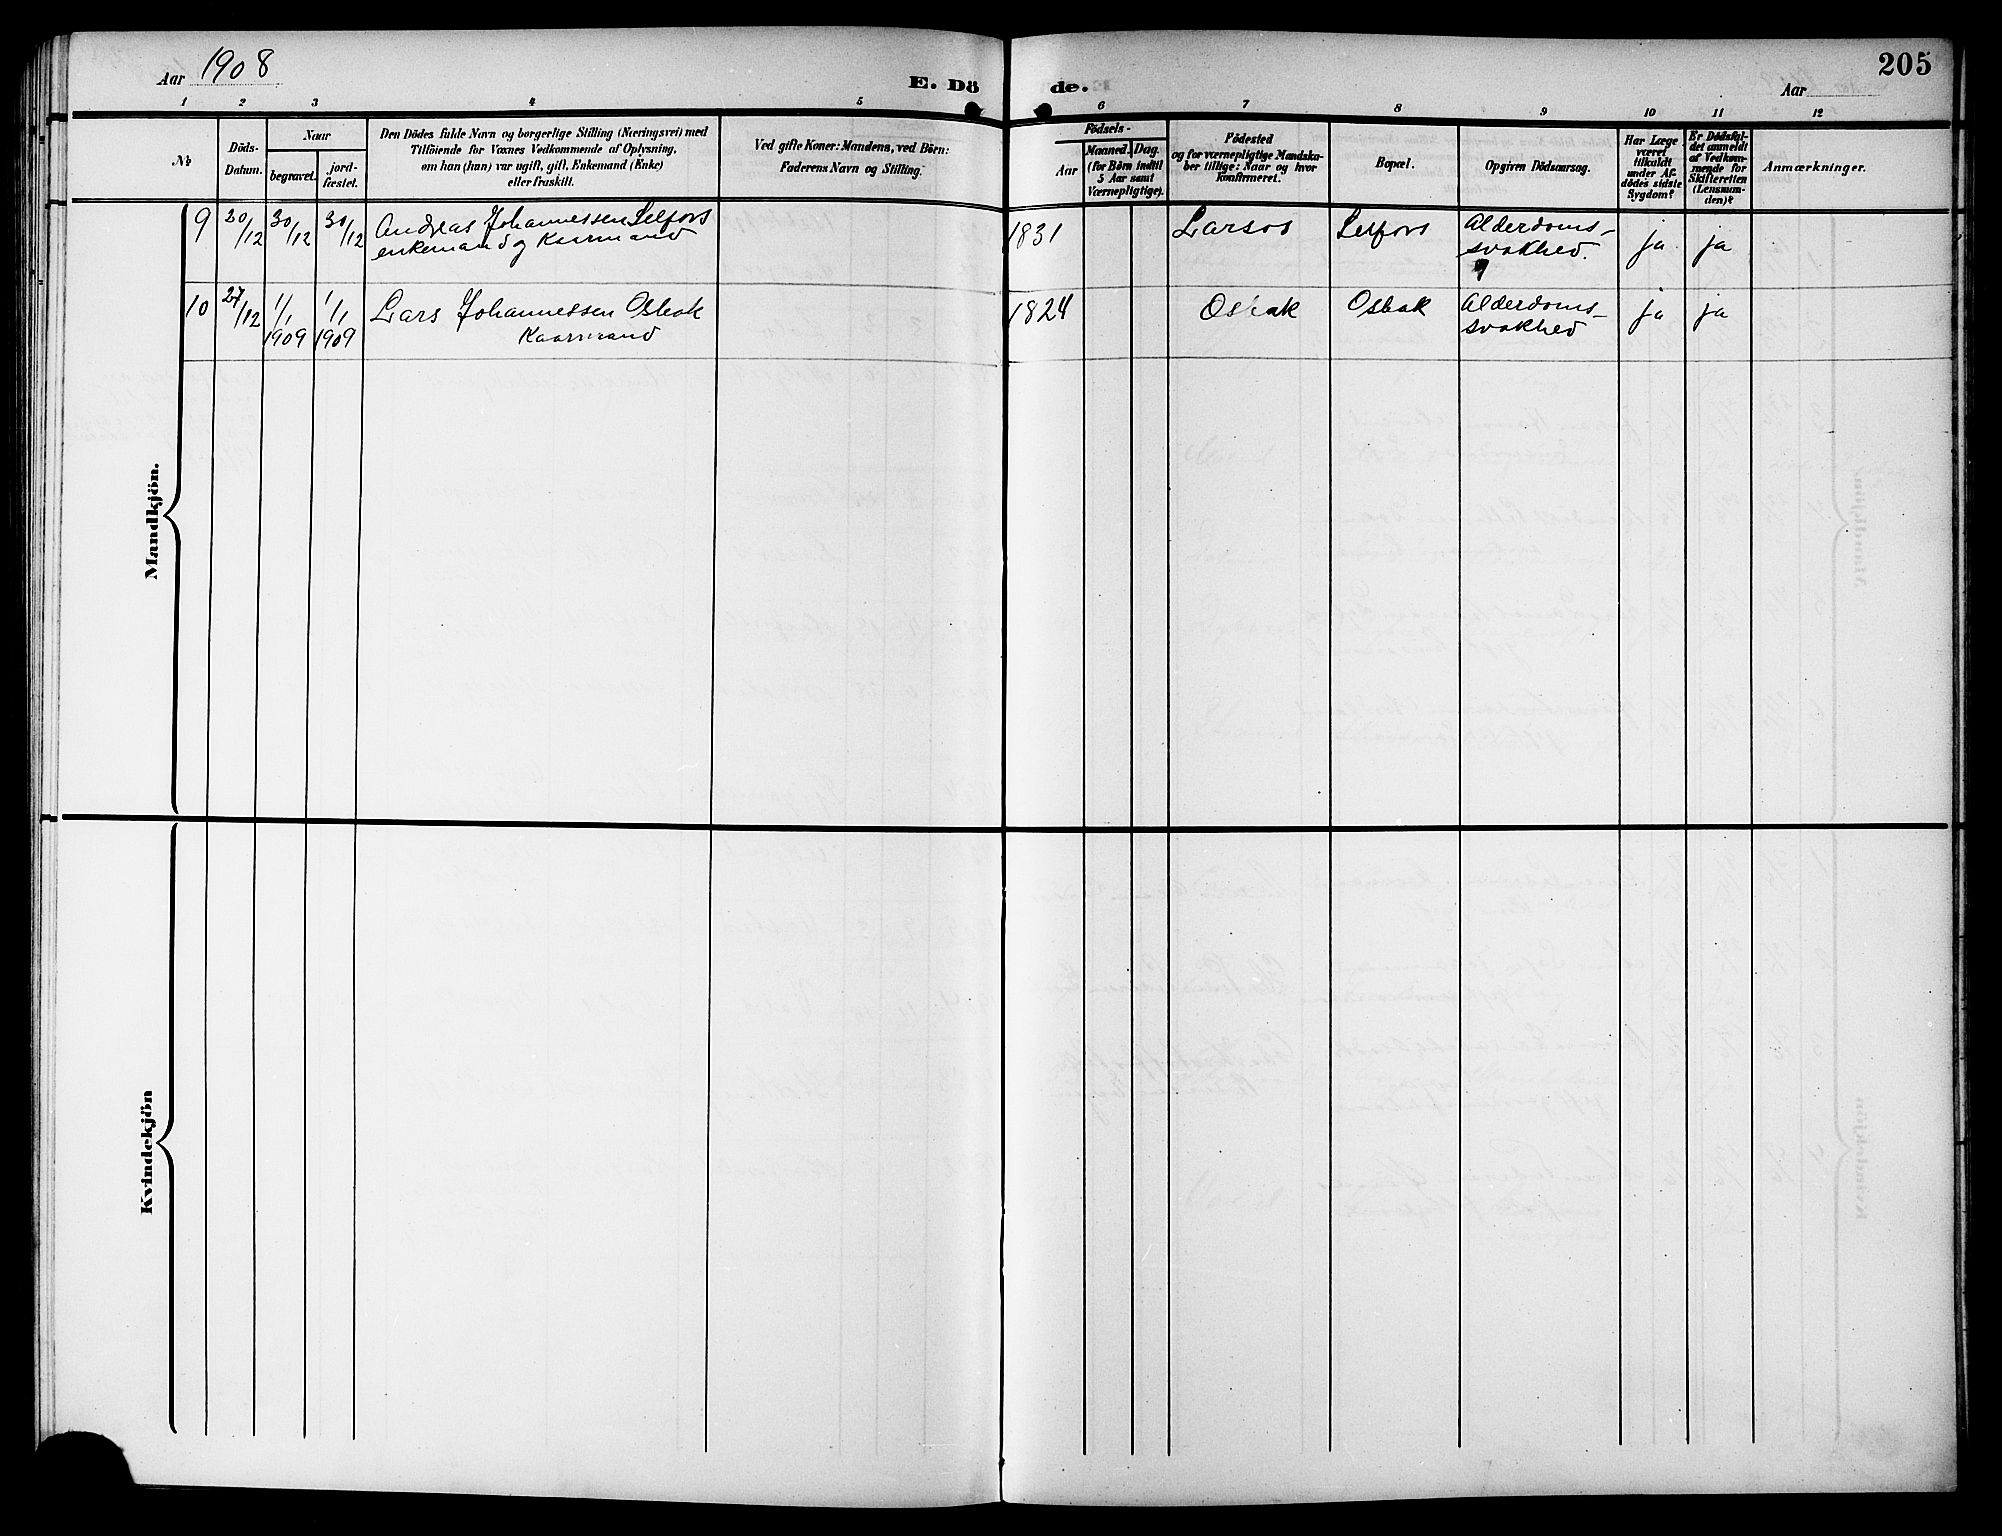 Aar 1908
E. Dö de.
205
Aar
1 2 3 4 5 6 7 8 9 10 11 12
№
Döds-
Datum.
Naar
begravet.
jord-
fæstet.
Den Dödes fulde Navn og borgerlige Stilling (Næringsvei) med
Tilföiende for Voxnes Vedkommende af Oplysning,
om han (hun) var ugift, gift, Enkemand (Enke)
eller fraskilt.
Ved gifte Koner: Mandens, ved Börn:
Faderens Navn og Stilling.
Födsels-
Aar
Maaned. Dag.
(for Börn indtil
5 Aar samt
Værnepligtige).
Födested
og for værnepligtige Mandska-
ber tillige: Naar og hvor
konfirmeret.
Bopæl.
Opgiven Dödsaarsag.
Har Læge
været
tilkaldt
under Af-
dödes sidste
Sygdom?
Er Dödsfal-
det anmeldt
af Vedkom-
mende for
Skifteretten
(Lensman-
den)?
Anmærkninger.
Mandkjön.
9 20/12 30/12 30/12 Andreas Johannessen Selfors 1831 Larsos Selfors Alderdoms- ja ja
enkemand og Kaarmand svakhed.
10 27/12 1/1 1/1 Lars Johannessen Osbak 1824 Osbak Osbak Alderdoms- ja ja
1909 1909 Kaarmand svakhed
Kvindekjön